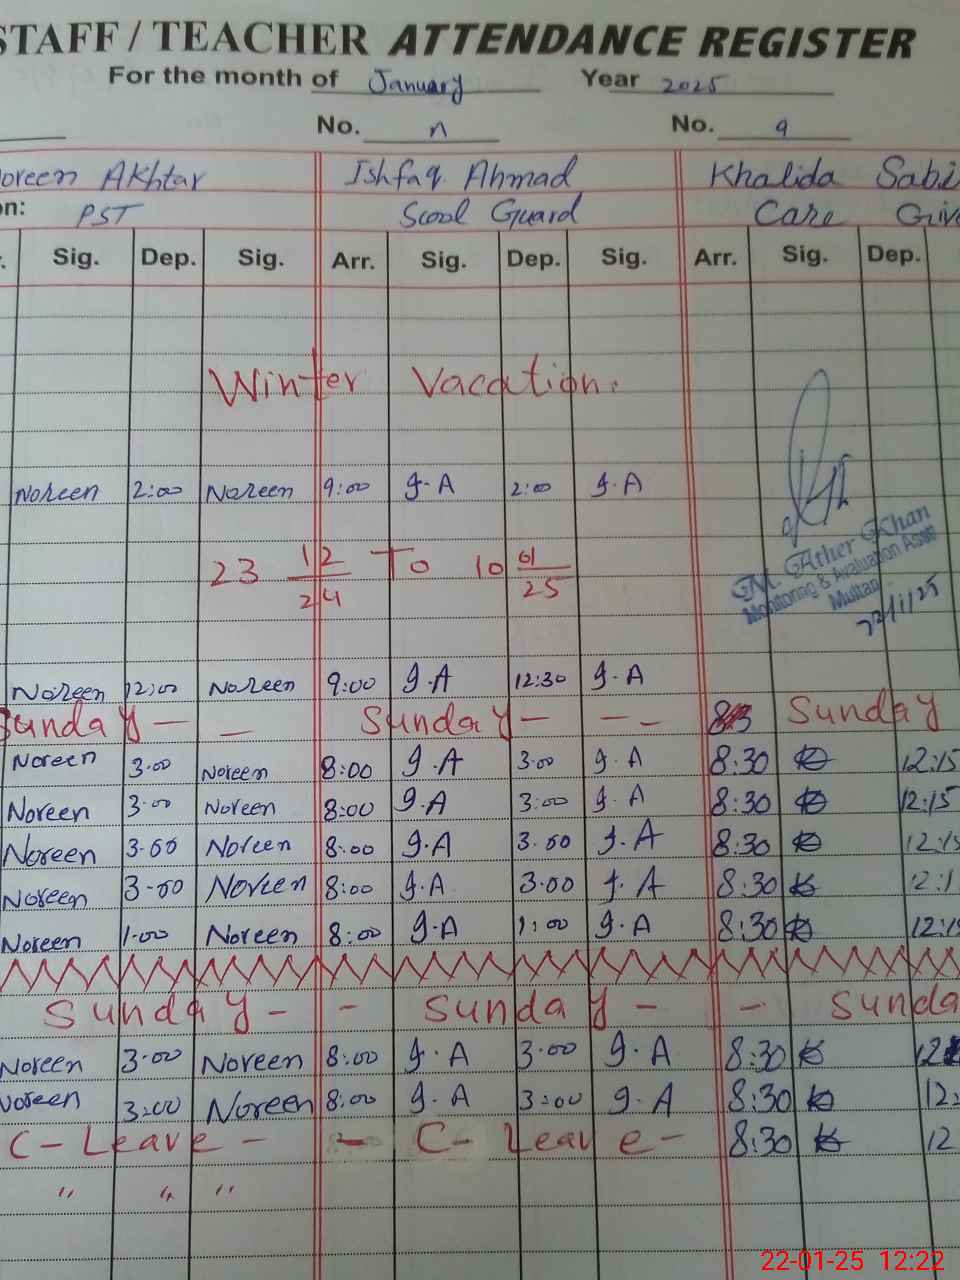 STAFF / TEACHER ATTENDANCE REGISTER
For the month of January Year 2025
No. n No. 9
oreen Akhtar Ishfaq. Ahmad Khalida Sabi
on: PST Scool Guard Care Giv
Sig. Dep. Sig. Arr. Sig. Dep. Sig. Arr. Sig. Dep.
Winter Vacation.
Noreen 2:00 Noreen 9:00 I.A 2:00 I.A
23 12/24 To 10 01/25
M. Ather Khan
Monitoring & Evaluation Asstt
Multan
22/1/25
Noreen 12:00 Noreen 9:00 I.A 12:30 I.A
Sunday — — Sunday — - - Sunday
Noreen 3.00 Noreen 8:00 I.A 3.00 I.A 8:30 12:15
Noreen 3.00 Noreen 8:00 I.A 3:00 I.A 8:30 12:15
Noreen 3.00 Noreen 8:00 I.A 3.00 I.A 8:30 12:15
Noreen 3-00 Noreen 8:00 I.A 3.00 I.A 8:30 12:1
Noreen 1.00 Noreen 8:00 I.A 1:00 I.A 8:30 12:15
Sunday - - Sunday - - Sunda
Noreen 3.00 Noreen 8:00 I.A 3.00 I.A 8:30 12
Noreen 3:00 Noreen 8:00 I.A 3:00 I.A 8:30 12:
C - Leave - - C - Leave - 8:30 12
" " "
22-01-25 12:22